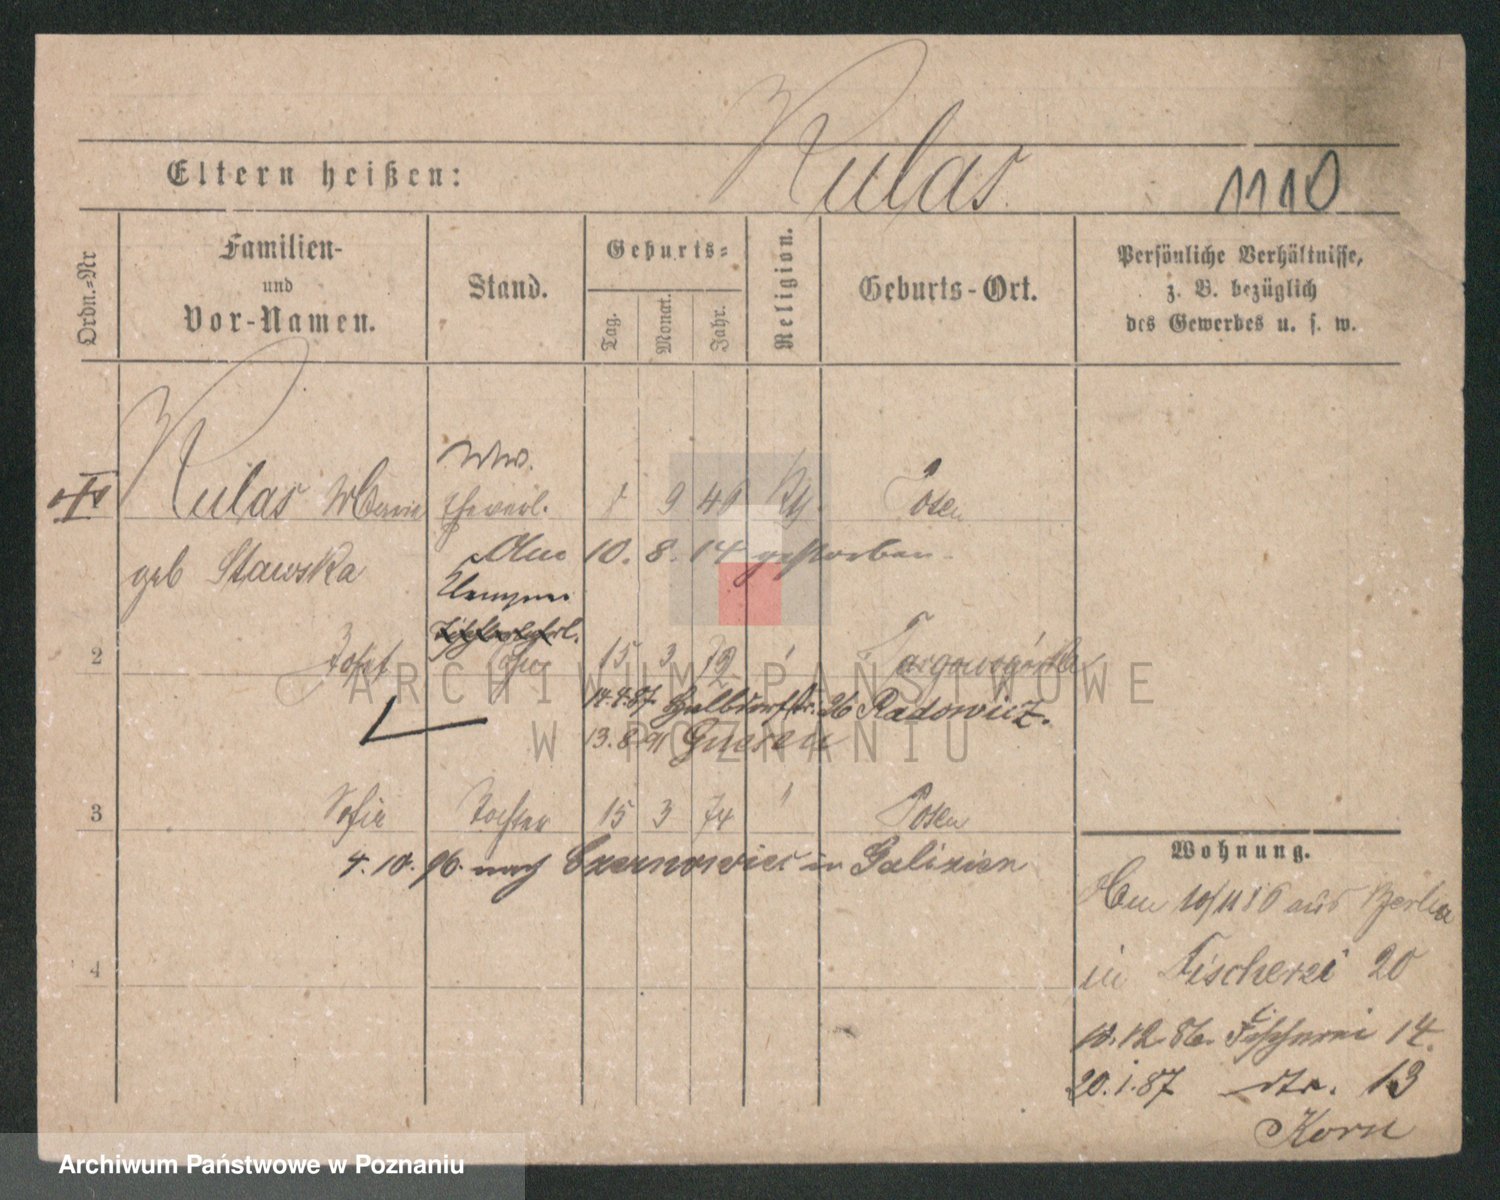 Kulas
1110
Eltern heißen:
Ordn.-Nr
Familien-
und
Vor-Namen.
Stand.
Geburts-
Tag.
Monat.
Jahr.
Religion.
Geburts-Ort.
Persönliche Verhältnisse,
z. B. bezüglich
des Gewerbes u. s. w.
Ww.
Kulas Marie Eheweib. 8 9 46 Posen
Am 10. 8. 14 gestorben.
geb Stawska
2 Josef 15 3 72 "
14.4.87. Halbdorfstr. 26 Radowicz.
13.8.91 Gnesen
3 Sofie Tochter 15 3 74 " Posen
4. 10. 96. nach Czernowiec in Galizien
4
Wohnung.
10/11 86 aus Berlin
in Fischerei 20
10.12.86. Fischerei 14.
20.1.87 dto. 13
Korn
ARCHIWUM PAŃSTWOWE
W POZNANIU
Archiwum Państwowe w Poznaniu